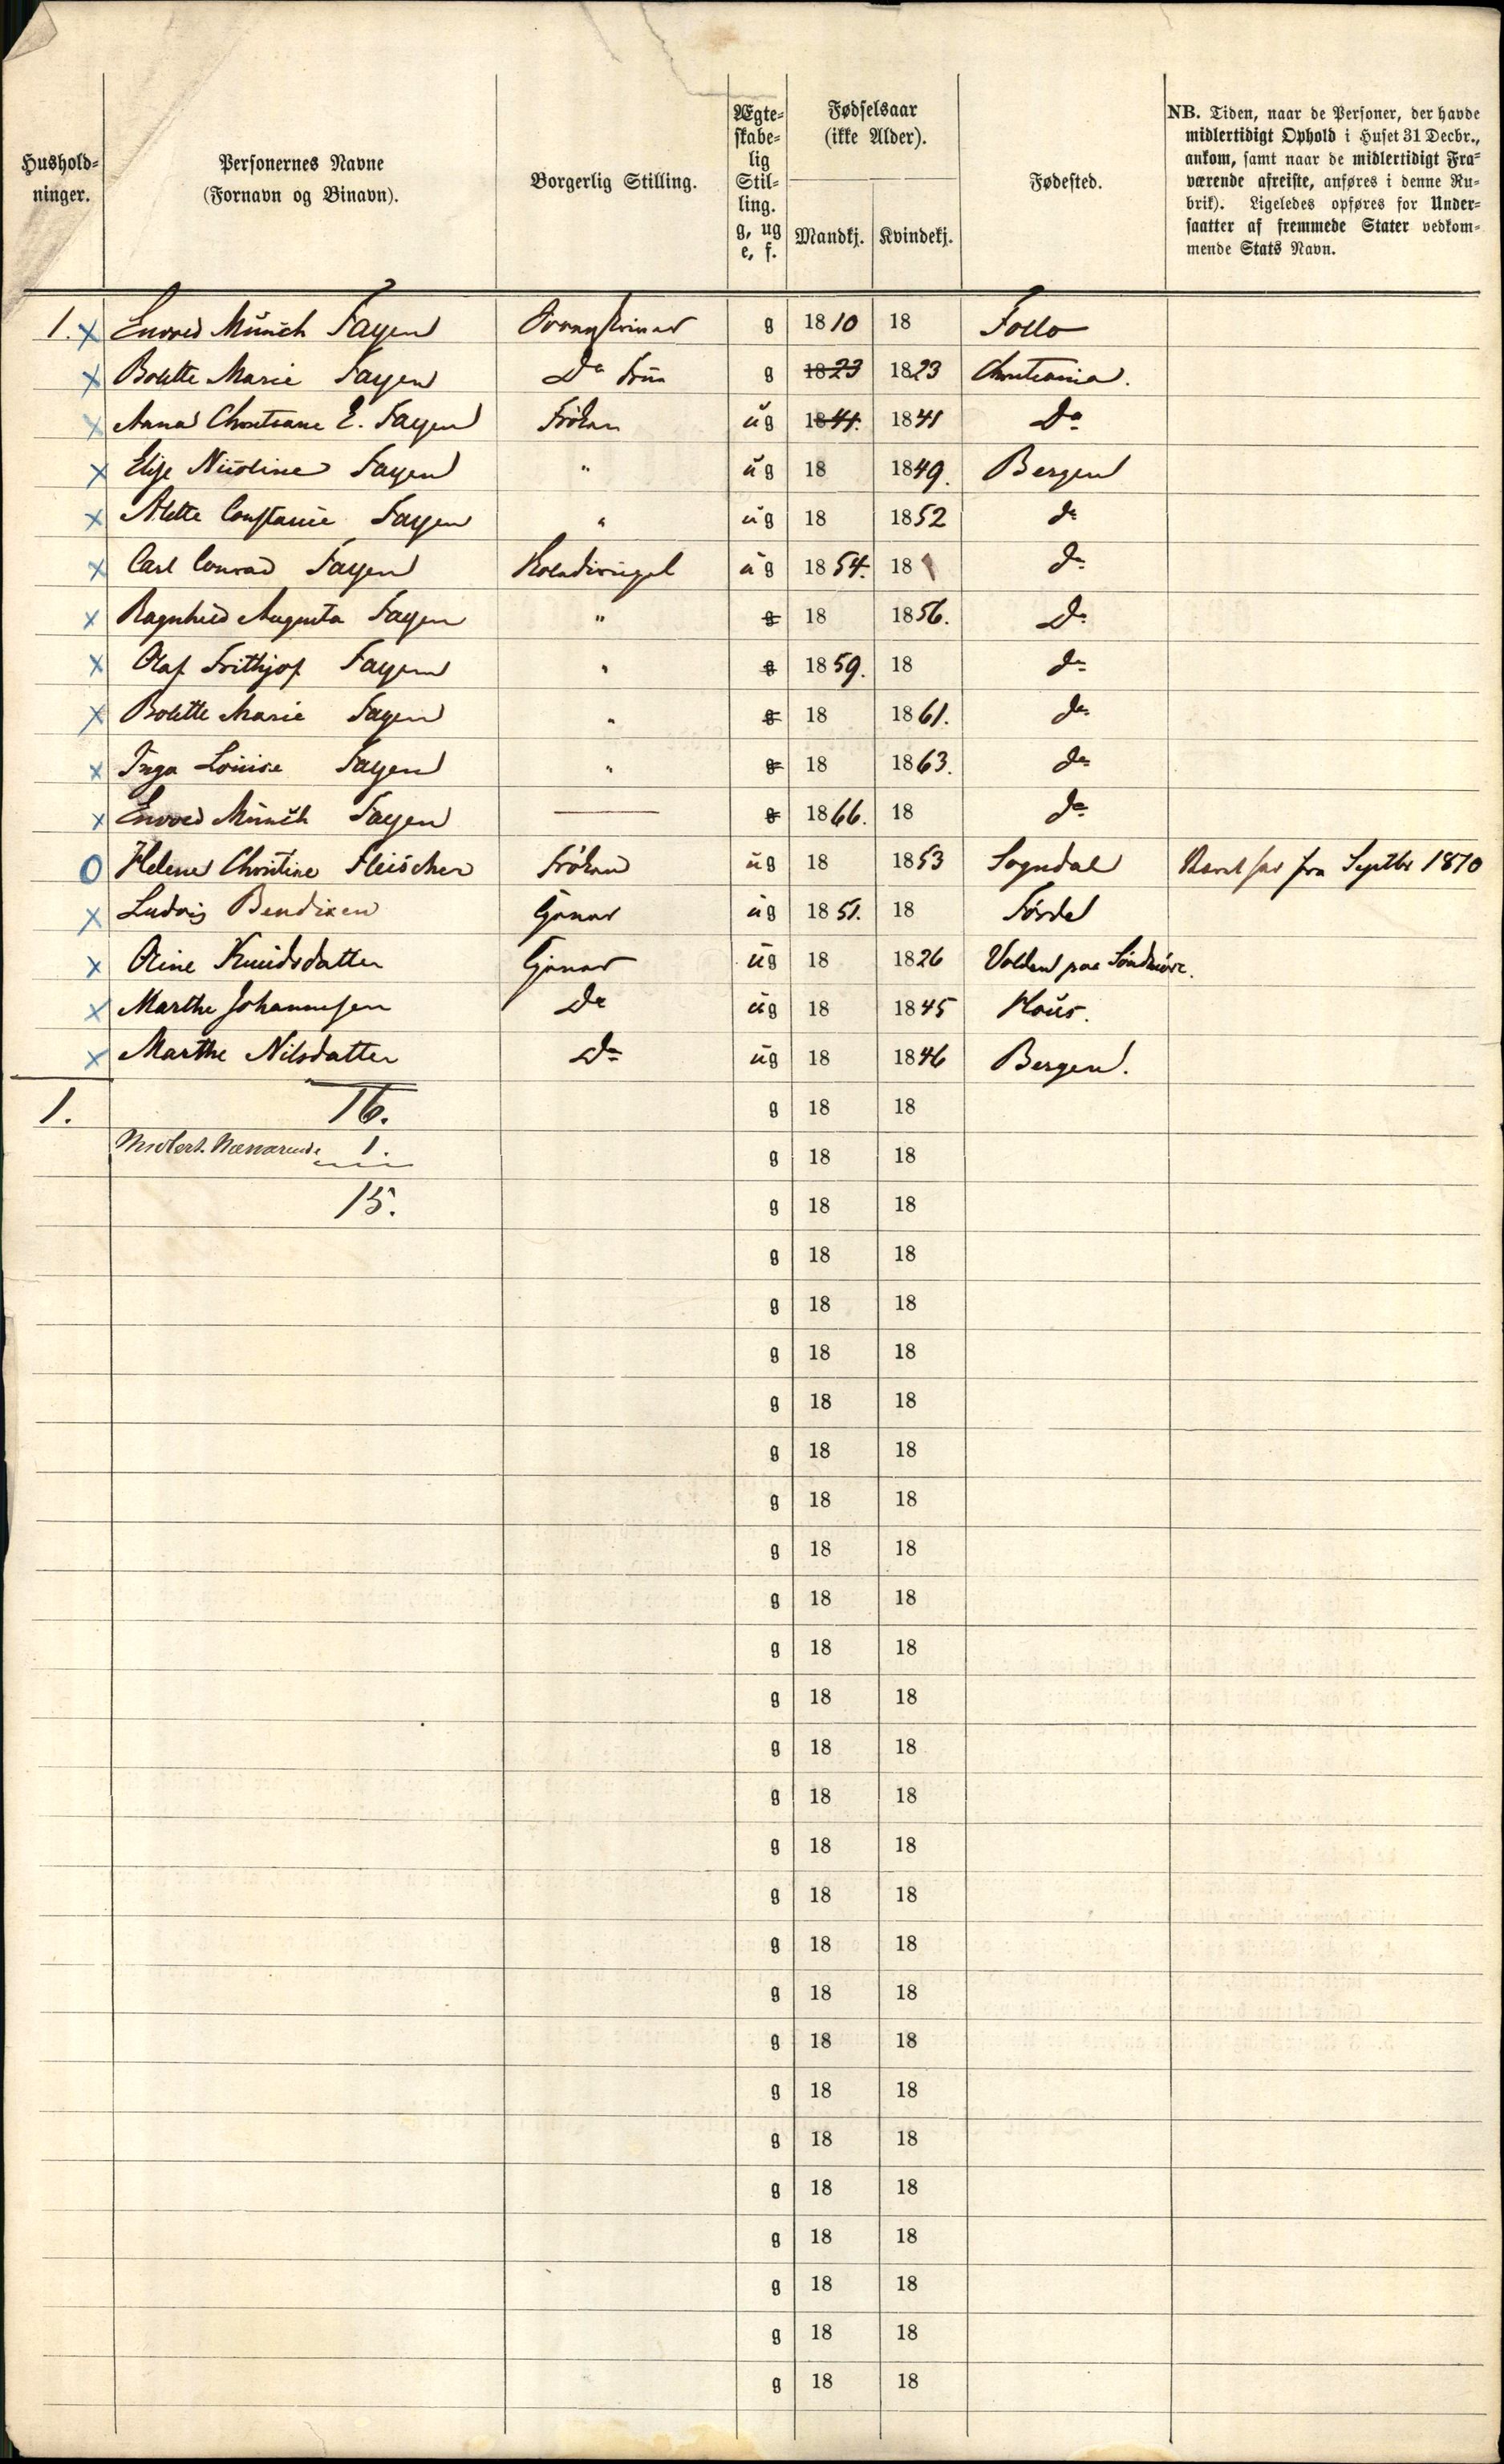 Hushold-
ninger.
Personernes Navne
(Fornavn og Binavn).
Borgerlig Stilling.
Ægte-
skabe-
lig
Stil-
ling.
g, ug
e, f.
Fødselsaar
(ikke Alder).
Mandkj. Kvindekj.
Fødested.
NB. Tiden, naar de Personer, der havde
midlertidigt Ophold i Huset 31 Decbr.,
ankom, samt naar de midlertidigt Fra-
værende afreiste, anføres i denne Ru-
brik). Ligeledes opføres for Under-
saatter af fremmede Stater vedkom-
mende Stats Navn.
1. x Envold Münch Fayen g 1810 18 Follo
x Bolette Marie Fayen Do Frue g 1823 1823 Christiania.
x Anna Christiane E. Fayen Frøken ug 1841. 1841 Do
x Elise Nicoline Fayen " ug 18 1849. Bergen
x Alette Constance Fayen " ug 18 1852 do
x Carl Conrad Fayen ug 1854. 18 do
x Ragnhild Augusta Fayen " g 18 1856. Do
x Olaf Frithjof Fayen " g 1859. 18 do
x Bolette Marie Fayen " g 18 1861. do
x Inga Louise Fayen " g 18 1863. do
x Envold Münch Fayen — g 1866. 18 do
O Helene Christine Fleischer Frøken ug 18 1853 Sogndal fra Septbr 1870
x Ludvig Bendixen ug 1851. 18 Førde
x Oline Knudsdatter ug 18 1826 Volden paa Søndmøre.
x Marthe Johannesen Do ug 18 1845 Hous.
x Marthe Nilsdatter Do ug 18 1846 Bergen.
1. 16. g 18 18
Midlert. Nærværende 1. g 18 18
15. g 18 18
g 18 18
g 18 18
g 18 18
g 18 18
g 18 18
g 18 18
g 18 18
g 18 18
g 18 18
g 18 18
g 18 18
g 18 18
g 18 18
g 18 18
g 18 18
g 18 18
g 18 18
g 18 18
g 18 18
g 18 18
g 18 18
g 18 18
g 18 18
g 18 18